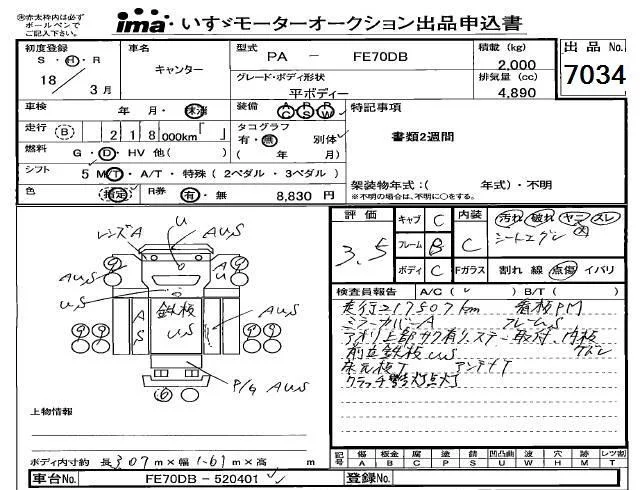 ㊟赤太枠内は必ず
ボールペンで
ご記入下さい。
ima いすゞモーターオークション出品申込書
初度登録
S・H・R
18 3月
車名
キャンター
型式 PA － FE70DB
グレード・ボディ形状
平ボディー
積載 (kg)
2,000
排気量 (cc)
4,890
出品 No.
7034
車検 年 月・抹消
装備 AC PS PW
特記事項
書類2週間
走行 B 218000km「 」
タコグラフ
有・無 別体
( 年 月)
燃料 G・D・HV 他( )
シフト 5 M/T・A/T・特殊(2ペダル・3ペダル)
架装物年式:( 年式)・不明
※不明の場合は、不明に○をする。
色 指定 R券 有・無 8,830 円
評価 3.5
キャブ C
フレーム B
ボディ C
内装 C
汚れ 破れ ヤニ スレ
Fガラス 割れ 線 点傷 イバリ
検査員報告 A/C( ) B/T( )
走行217507km 看板PM
ミラーカバーA フレームS
床元板T アンテナT
レンズA
U
AUS
AUS
AU
US
AS
鉄板
US
AUS
P/G AUS
上物情報
ボディ内寸約 長3.07m×幅1.61m×高 m
記号 傷 板金 腐 塗 錆 凹凸曲 波 穴 跡 レツ割
A B C P S U W H M T
車台No. FE70DB－520401
登録No.